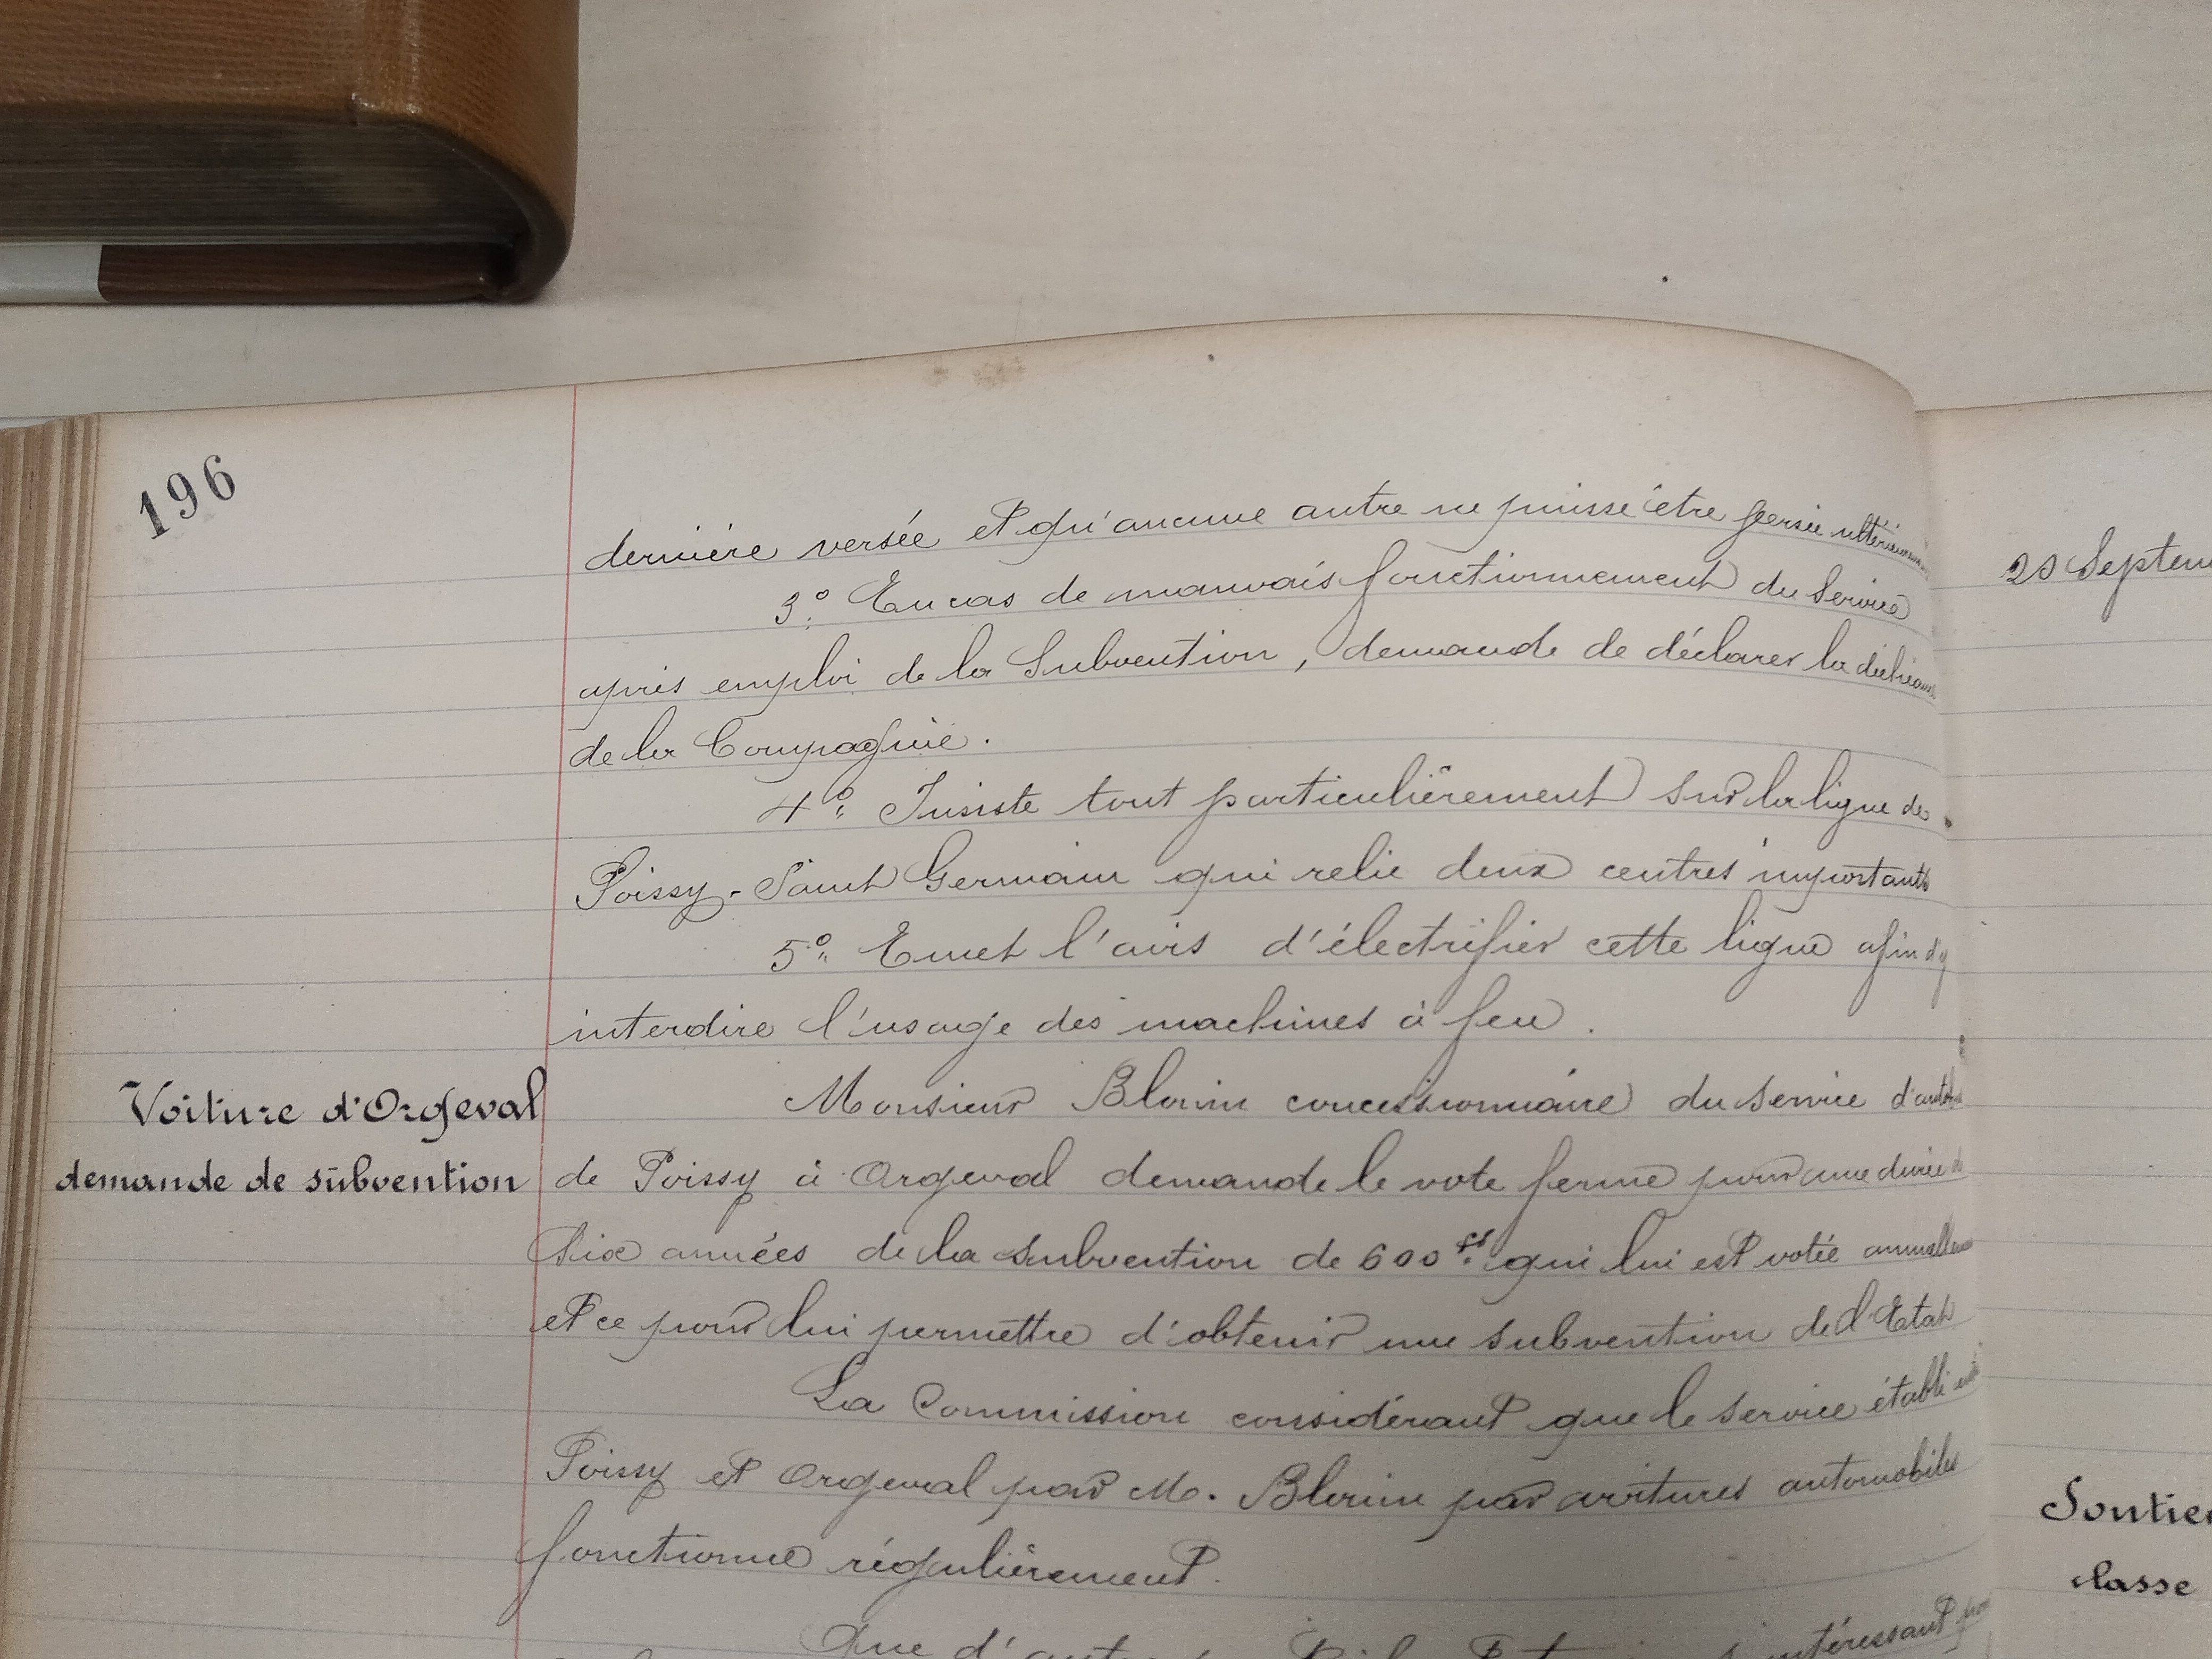 196
dernière versée et qu'aucune autre ne puisse être versée
3° En cas de mauvais fonctionnement du Service
après emploi de la Subvention, demande de déclarer la
de la Compagnie.
4° Insiste tout particulièrement sur la ligne de
Poissy-Saint Germain qui relie deux centres importants
5° Emet l'avis d'électrifier cette ligne afin d'y
interdire l'usage des machines à feu.
Voiture d'Orgeval
demande de subvention
Monsieur Blouin concessionnaire du service
de Poissy à Orgeval demande le vote ferme pour une durée de
six années de la subvention de 600 fs qui lui est votée
et ce pour lui permettre d'obtenir une subvention de l'Etat
La Commission considérant que le service établi
Poissy et Orgeval par M. Blouin par voitures automobiles
fonctionne régulièrement.
Que d'intéressant
Septem
Soutien
classe